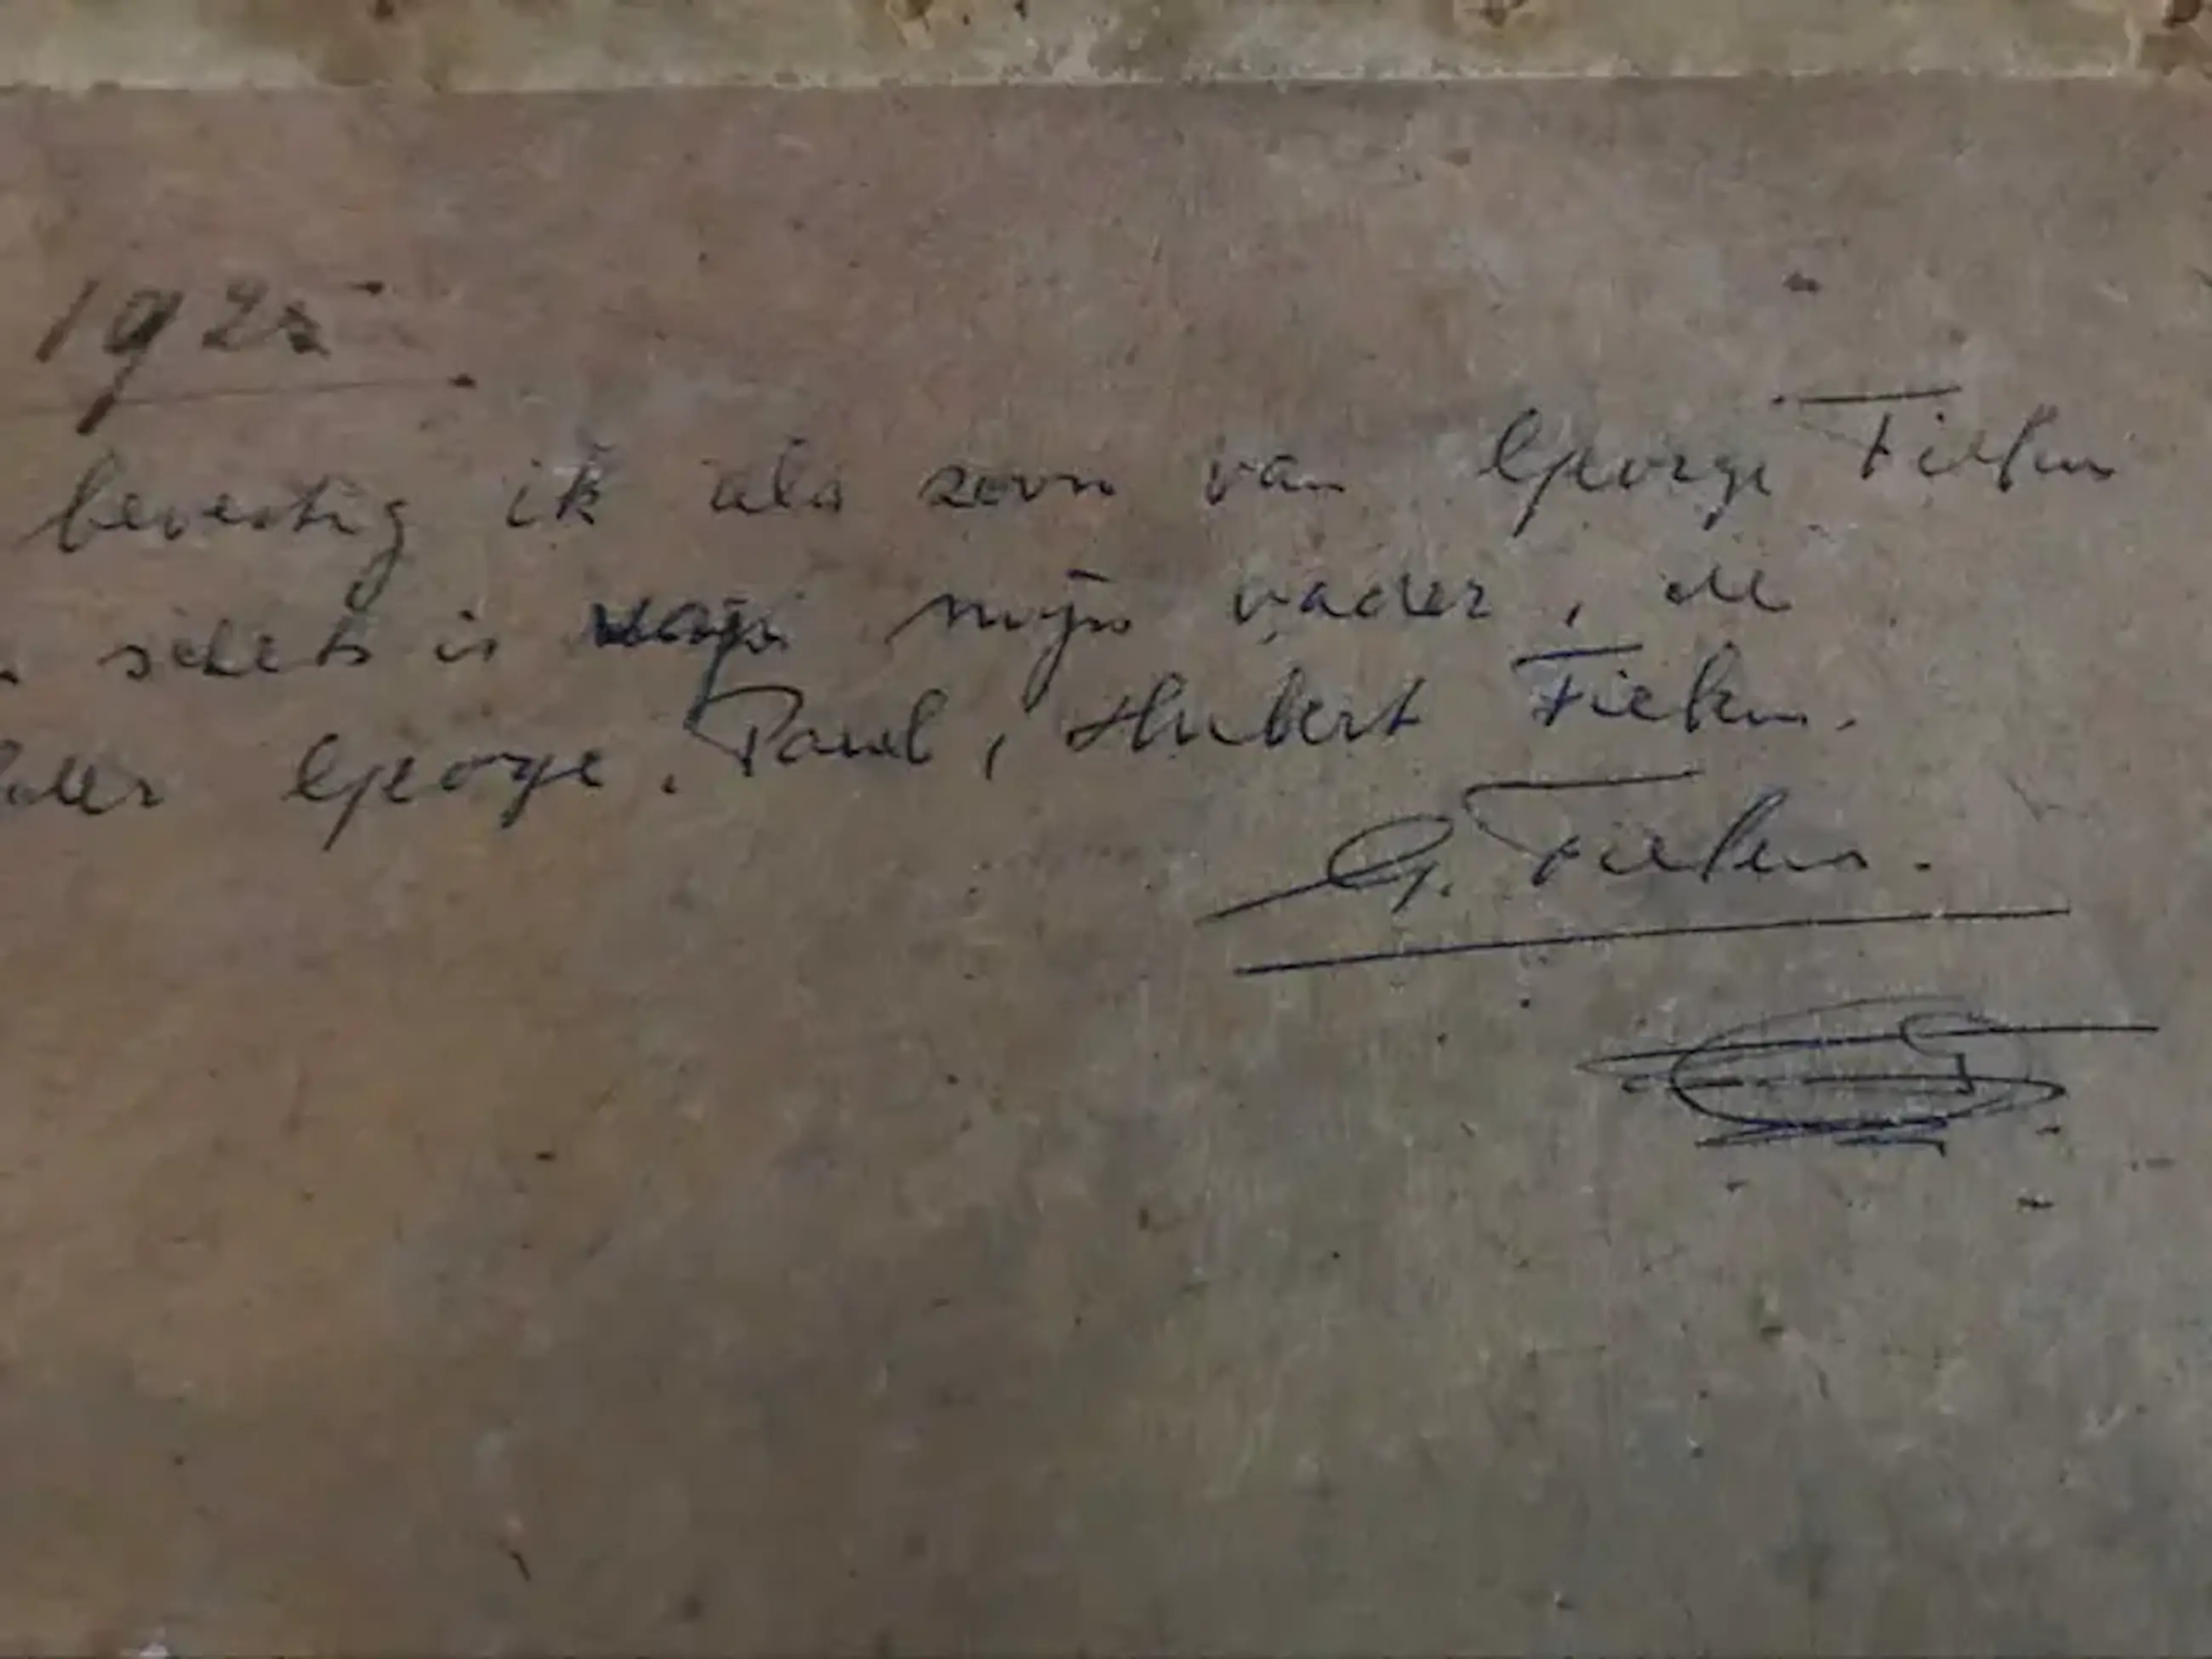 1925
bevestig ik als zoon van George Fieken
schets is van mijn vader, de
George, Paul, Hubert Fieken.
G. Fieken.